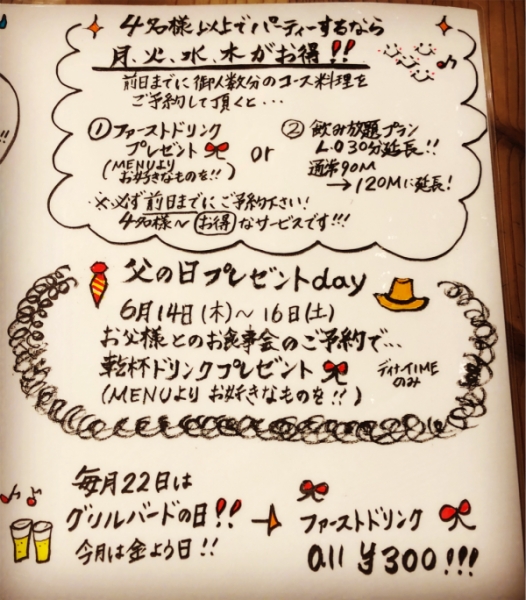 4名様以上でパーティーするなら
月、火、水、木がお得!!
前日までに御人数分のコース料理を
ご予約して頂くと…
①ファーストドリンク
プレゼント
(MENUより
お好きなものを!!)
or
② 飲み放題プラン
L.O30分延長!!
通常90M
→120Mに延長!
※必ず前日までにご予約下さい!
4名様〜お得なサービスです!!!
父の日プレゼントday
6月14日(木)〜16日(土)
お父様とのお食事会のご予約で…
乾杯ドリンクプレゼント
(MENUより お好きなものを!!)
ディナーTIME
のみ
毎月22日は
グリルバードの日!!
今月は金よう日!!
→ ファーストドリンク
all ¥300!!!